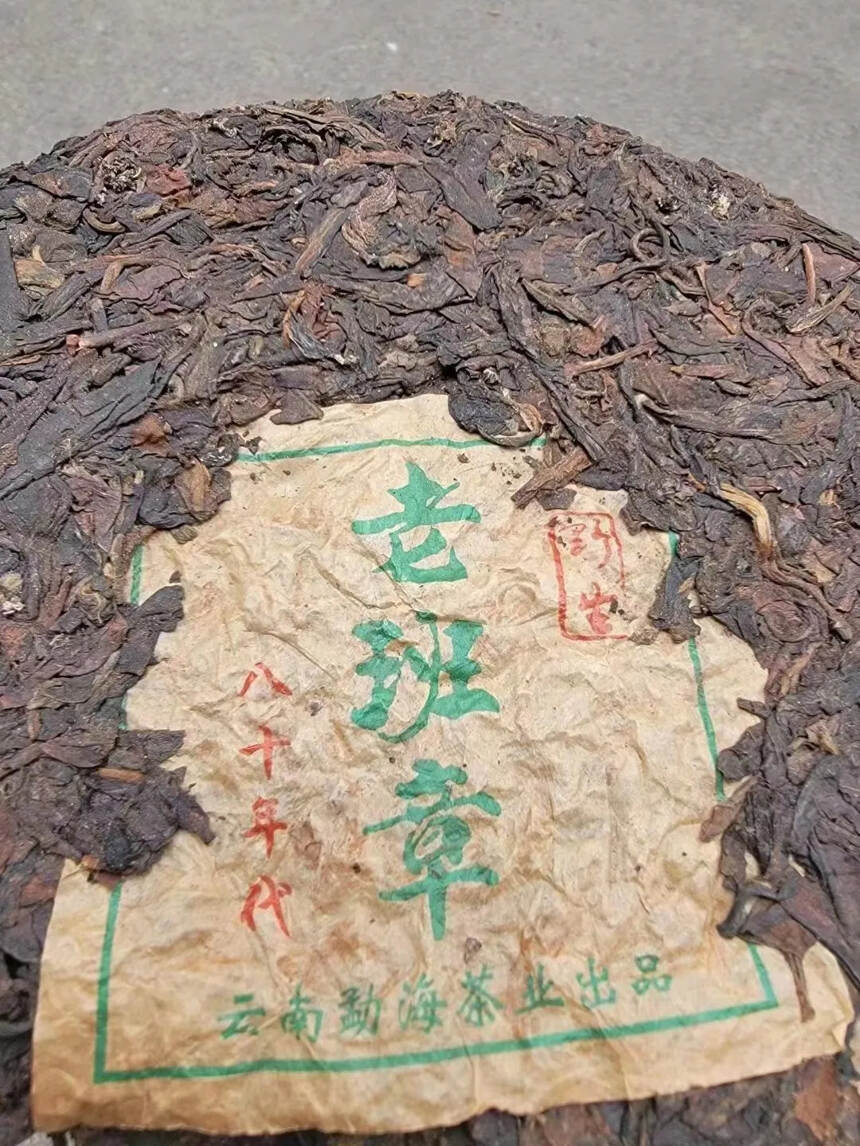 老班章
野生
八十年代
云南勐海茶业出品